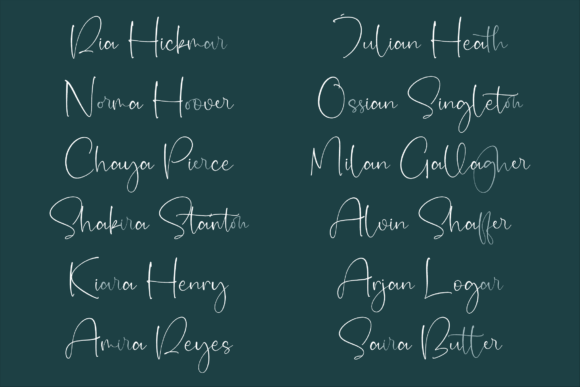 Ria Hickman
Norma Hoover
Chaya Pierce
Shakira Stanton
Kiara Henry
Amira Reyes
Julian Heath
Ossian Singleton
Milan Gallagher
Alvin Shaffer
Arjan Logan
Saira Butter